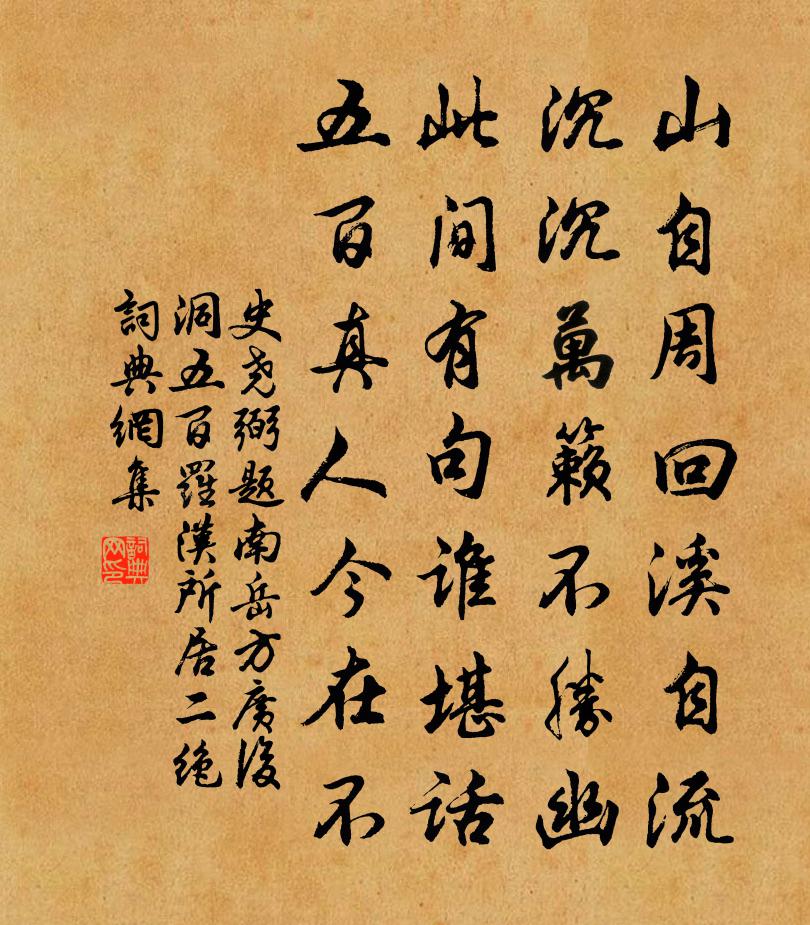 山自周回溪自流
沉沉萬籟不勝幽
此间有句谁堪话
五百真人今在不
史尧弼题南岳方廣後
洞五百羅漢所居二绝
詞典網集
詞典
网印